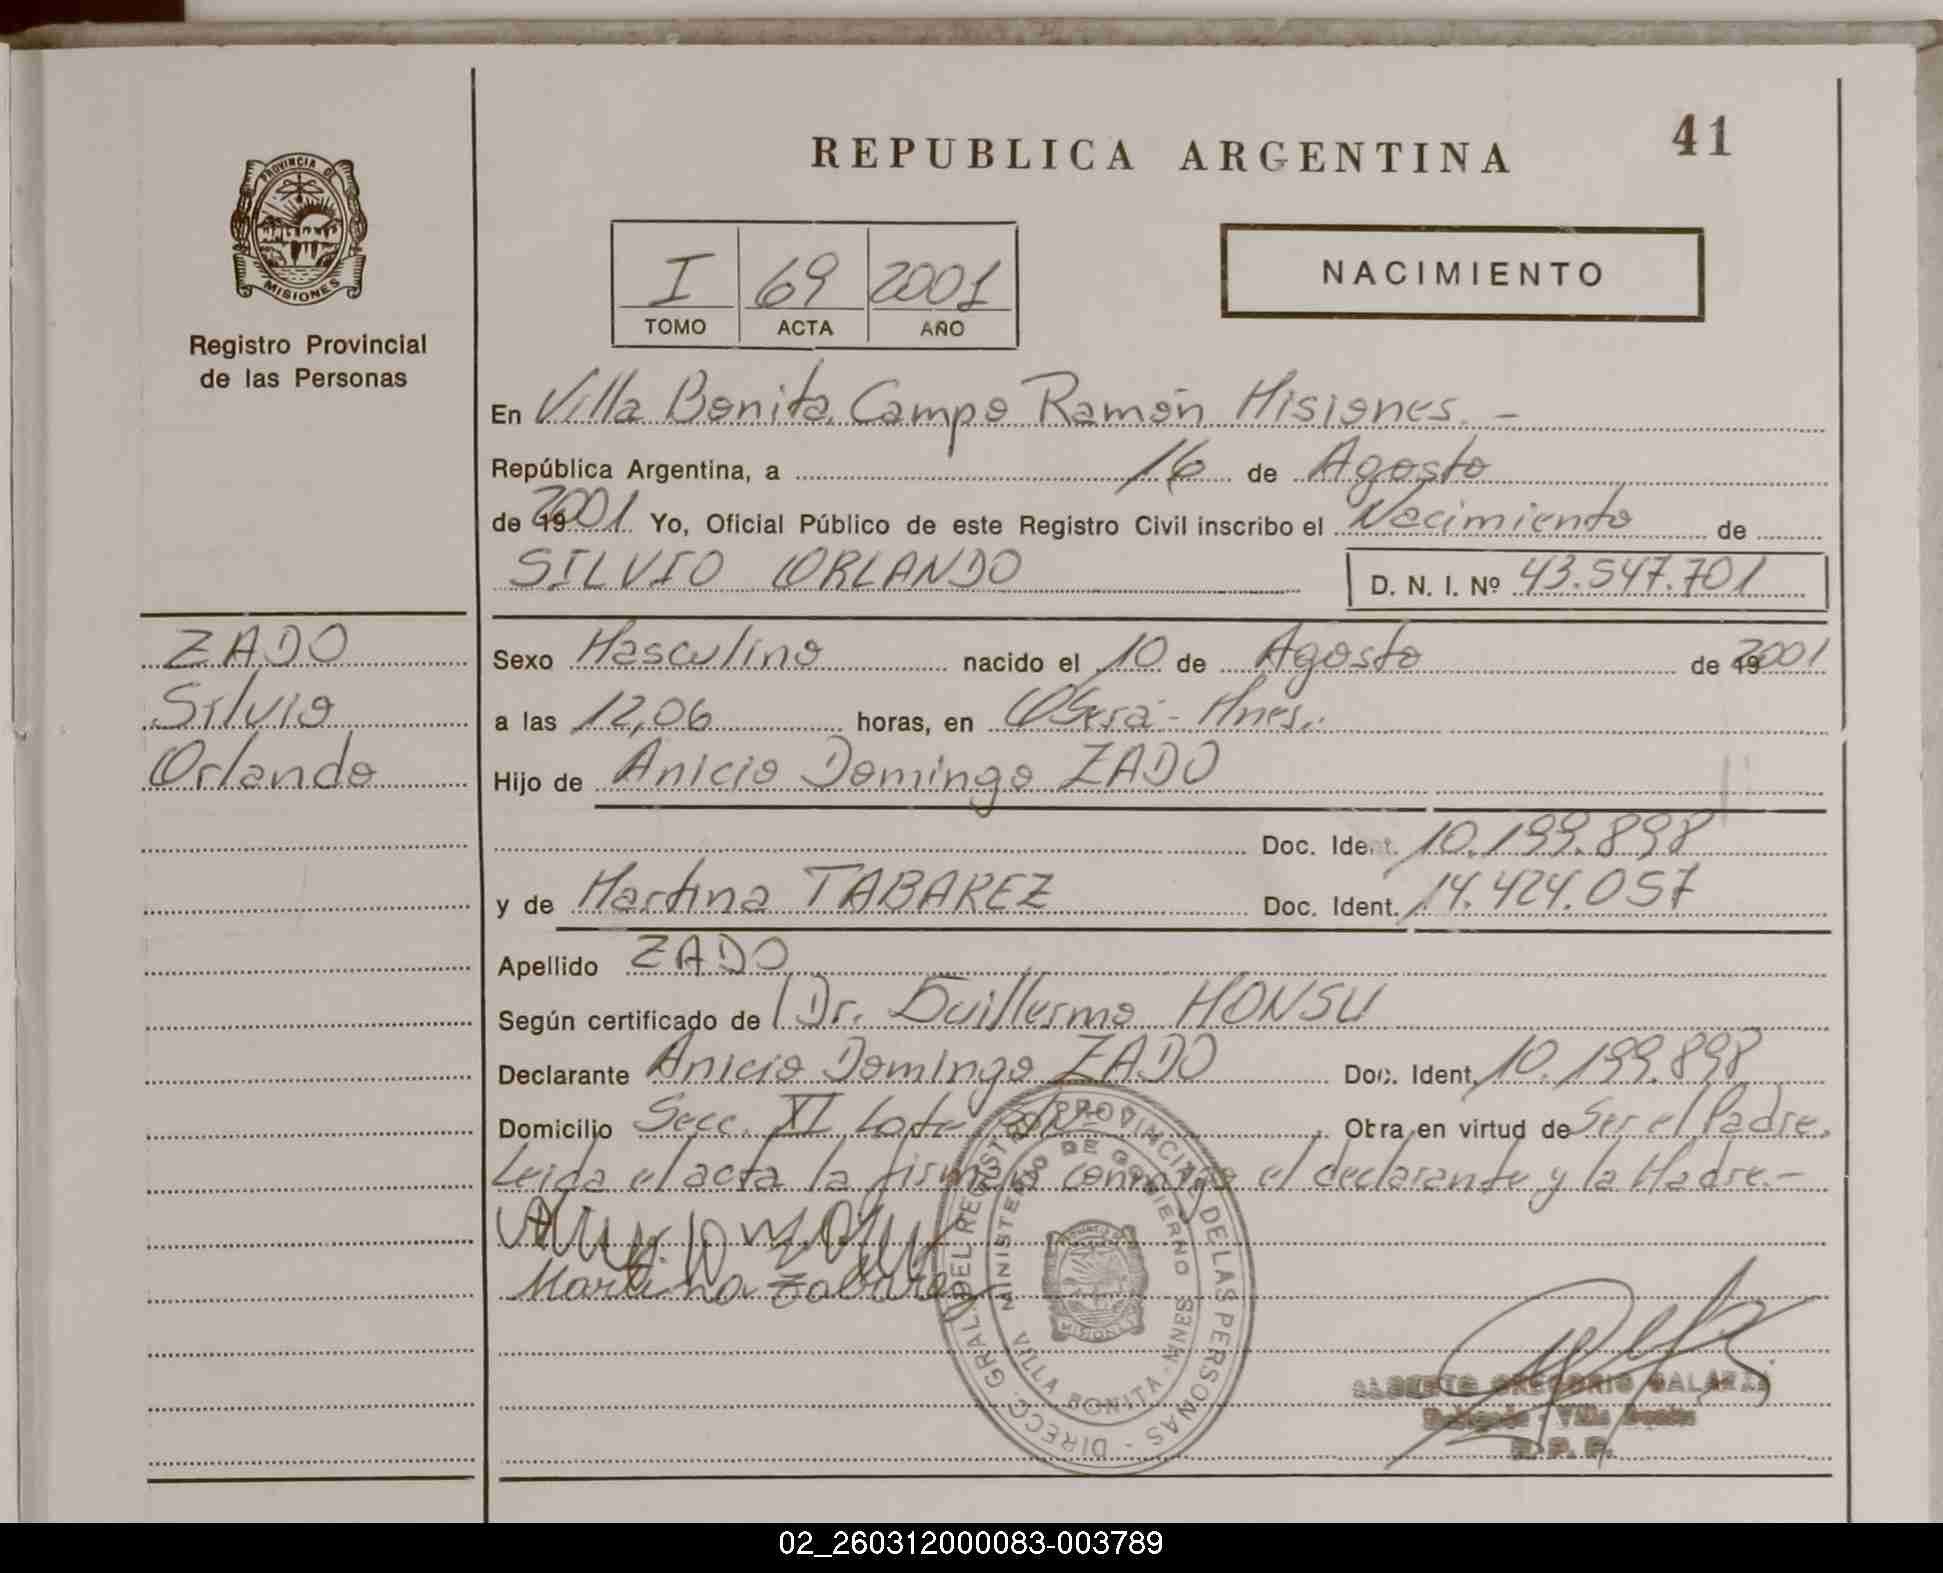 REPUBLICA ARGENTINA
41
PROVINCIA DE
MISIONES
Registro Provincial
de las Personas
I 69 2001
TOMO ACTA AÑO
NACIMIENTO
En Villa Bonita, Campo Ramón Misiones.-
República Argentina, a 16 de Agosto
de 19 2001 Yo, Oficial Público de este Registro Civil inscribo el Nacimiento de
SILVIO ORLANDO D. N. I. Nº 43.547.701
ZADO
Silvio
Orlando
Sexo Masculino nacido el 10 de Agosto de 19 2001
a las 12,06 horas, en Oberá - Mnes.
Hijo de Anicio Domingo ZADO
Doc. Ident. 10.199.898
y de Martina TABAREZ Doc. Ident. 14.424.057
Apellido ZADO
Según certificado de Dr. Guillermo HONSU
Declarante Anicio Domingo ZADO Doc. Ident. 10.199.898
Domicilio Secc. XI Lote Obra en virtud de Ser el Padre.
Leida el acta la firman conmigo el declarante y la Madre.-
Martina Tabarez
DIRECC. GRAL. DEL REGISTRO PROVINCIAL DE LAS PERSONAS -
MINISTERIO DE GOBIERNO
VILLA BONITA - MNES
MISIONES
ALBERTO GREGORIO GALARZA
Delegado - Villa Bonita
R. P. P.
02_260312000083-003789